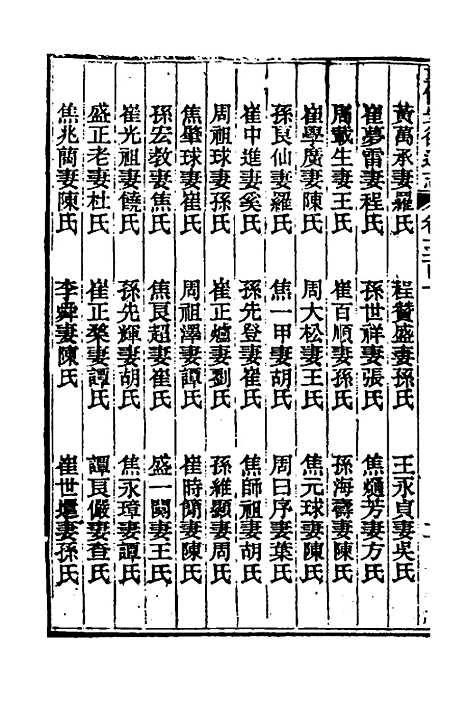 黃萬承妻羅氏 程贊盛妻孫氏 王永貞妻吳氏
崔夢雷妻程氏 孫世祥妻張氏 焦烿芳妻方氏
周載生妻王氏 崔百順妻孫氏 孫海壽妻陳氏
崔學廣妻陳氏 周大松妻王氏 焦元球妻陳氏
孫良仙妻羅氏 焦一甲妻胡氏 周日序妻葉氏
崔中進妻奚氏 孫先登妻崔氏 焦師祖妻胡氏
周祖球妻孫氏 崔正爐妻劉氏 孫維顯妻周氏
焦肇球妻崔氏 周祖澤妻譚氏 崔時簡妻陳氏
孫宏教妻焦氏 焦良超妻崔氏 盛一閱妻王氏
崔光祖妻饒氏 孫先輝妻胡氏 焦永璋妻譚氏
盛正老妻杜氏 崔正榮妻譚氏 譚良儼妻查氏
焦兆蘭妻陳氏 李舜妻陳氏 崔世妻孫氏